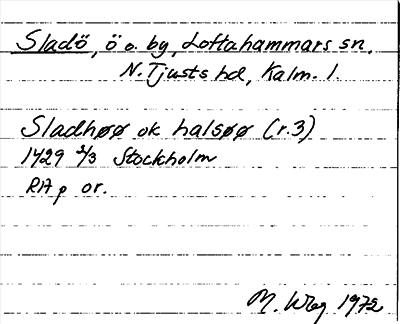 Sladö, ö o. by, Loftahammars sn,
N. Tjusts hd, Kalm. l.
Sladhøø ok halsøø (r.3)
1429 2/3 Stockholm
RA p or.
M. Wbg 1972